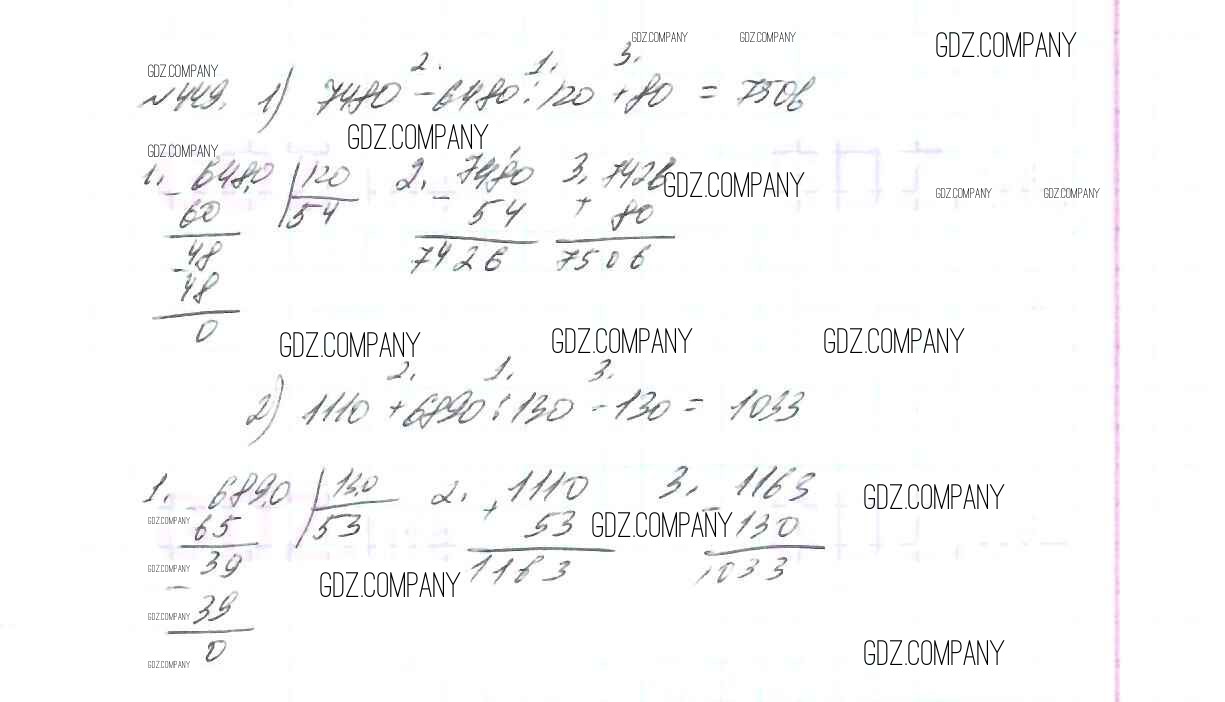 GDZ.COMPANY GDZ.COMPANY GDZ.COMPANY
GDZ.COMPANY
2. 1. 3.
№449. 1) 7480 - 6480 : 120 + 80 = 7506
GDZ.COMPANY
GDZ.COMPANY
1. 6480 120 2. 7480 3. 7426
GDZ.COMPANY GDZ.COMPANY GDZ.COMPANY
- 60 54 - 54 + 80
48 7426 7506
- 48
0
GDZ.COMPANY GDZ.COMPANY GDZ.COMPANY
2. 1. 3.
2) 1110 + 6890 : 130 - 130 = 1033
1. - 6890 130 2. + 1110 3. - 1163
GDZ.COMPANY
GDZ.COMPANY
65 53 53 GDZ.COMPANY 130
39 1163 1033
GDZ.COMPANY
GDZ.COMPANY
- 39
GDZ.COMPANY
0
GDZ.COMPANY
GDZ.COMPANY